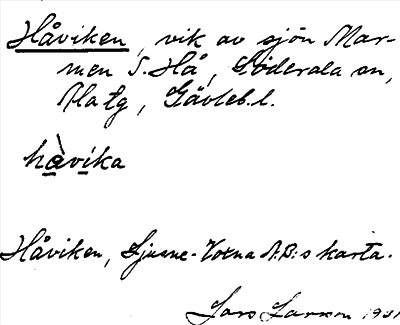 Håviken, vik av sjön Mar-
men S. Hå, Söderala sn,
Ala tg, Gävleb. l.
hàvika
Håviken, Ljusne-Voxna A.B:s karta.
Lars Larson 1931